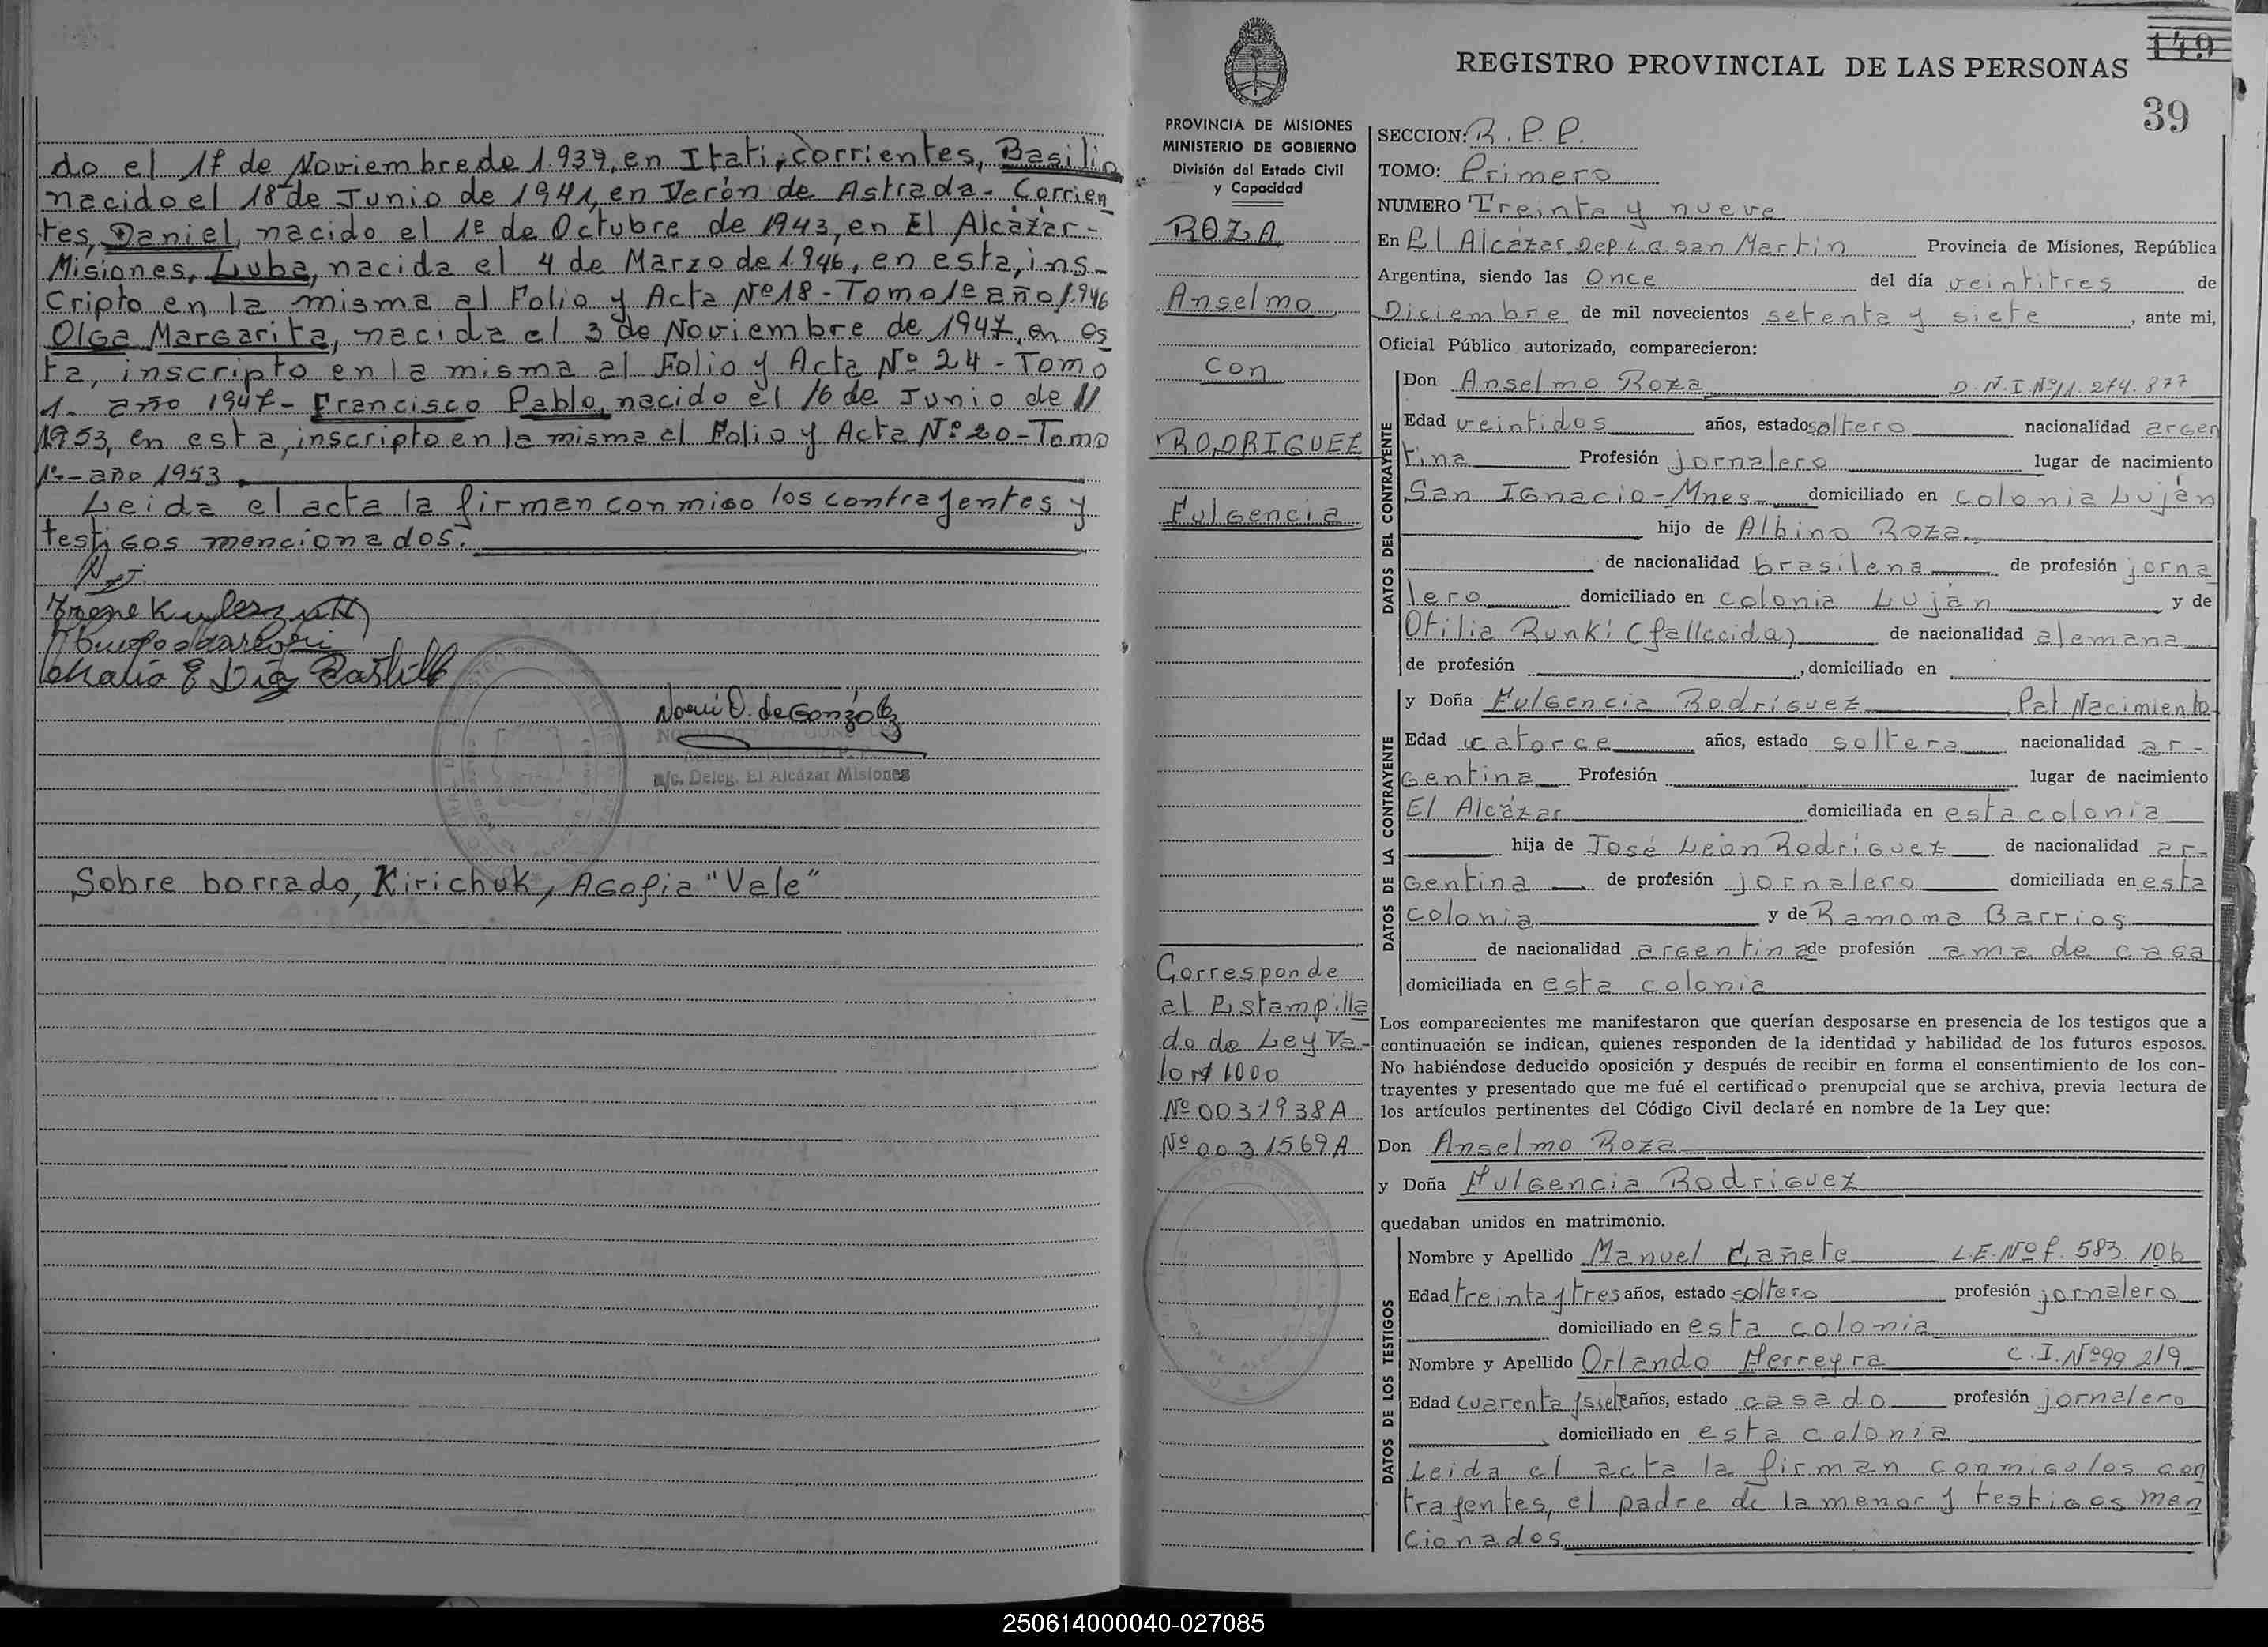 do el 17 de Noviembre de 1.939, en Itati, Corrientes, Basilio
nacido el 18 de Junio de 1941, en Verón de Astrada - Corrien
tes, Daniel, nacido el 1º de Octubre de 1943, en El Alcázar -
Misiones, Luba, nacida el 4 de Marzo de 1.946, en esta, ins-
cripto en la misma al Folio y Acta Nº 18 - Tomo 1º año 1.946
Olga Margarita, nacida el 3 de Noviembre de 1947, en es
ta, inscripto en la misma al Folio y Acta Nº 24 - Tomo
1- año 1947 - Francisco Pablo, nacido el 16 de Junio de //
1953, en esta, inscripto en la misma al Folio y Acta Nº 20 - Tomo
1º - año 1953
Leida el acta la firman conmigo los contrayentes y
testigos mencionados.
Noemi O. de González
a/c. Deleg. El Alcázar Misiones
Sobre borrado, Kirichuk, Agafia "Vale"
149
REGISTRO PROVINCIAL DE LAS PERSONAS
39
PROVINCIA DE MISIONES
MINISTERIO DE GOBIERNO
División del Estado Civil
y Capacidad
ROZA
Anselmo
con
RODRIGUEZ
Fulgencia
Corresponde
al Estampilla
do de Ley Va-
lor $ 1000
Nº 0031938A
Nº 0031569A
SECCION: R.P.P.
TOMO: Primero
NUMERO Treinta y nueve
En El Alcázar, Dep. L.G. San Martín Provincia de Misiones, República
Argentina, siendo las Once del día veintitres de
Diciembre de mil novecientos setenta y siete, ante mi,
Oficial Público autorizado, comparecieron:
DATOS DEL CONTRAYENTE
Don Anselmo Roza D.N.I. Nº 11.274.877
Edad veintidos años, estado soltero nacionalidad argen
tina Profesión jornalero lugar de nacimiento
San Ignacio - Mnes domiciliado en Colonia Luján
hijo de Albino Roza
de nacionalidad brasilena de profesión jorna
lero domiciliado en colonia Luján y de
Otilia Runki (fallecida) de nacionalidad alemana
de profesión , domiciliado en
DATOS DE LA CONTRAYENTE
y Doña Fulgencia Rodríguez Pat Nacimiento
Edad catorce años, estado soltera nacionalidad ar-
gentina Profesión lugar de nacimiento
El Alcázar domiciliada en esta colonia
hija de José León Rodríguez de nacionalidad ar-
gentina de profesión jornalero domiciliada en esta
colonia y de Ramona Barrios
de nacionalidad argentina de profesión ama de casa
domiciliada en esta colonia
Los comparecientes me manifestaron que querían desposarse en presencia de los testigos que a
continuación se indican, quienes responden de la identidad y habilidad de los futuros esposos.
No habiéndose deducido oposición y después de recibir en forma el consentimiento de los con-
trayentes y presentado que me fué el certificado prenupcial que se archiva, previa lectura de
los artículos pertinentes del Código Civil declaré en nombre de la Ley que:
Don Anselmo Roza
y Doña Fulgencia Rodríguez
quedaban unidos en matrimonio.
DATOS DE LOS TESTIGOS
Nombre y Apellido Manuel Cañete L.E. Nº 7.583.106
Edad treinta y tres años, estado soltero profesión jornalero
domiciliado en esta colonia
Nombre y Apellido Orlando Herreyra C.I. Nº 99 219
Edad cuarenta y siete años, estado casado profesión jornalero
domiciliado en esta colonia
Leida el acta la firman conmigo los con
trayentes, el padre de la menor y testigos men
cionados
250614000040-027085